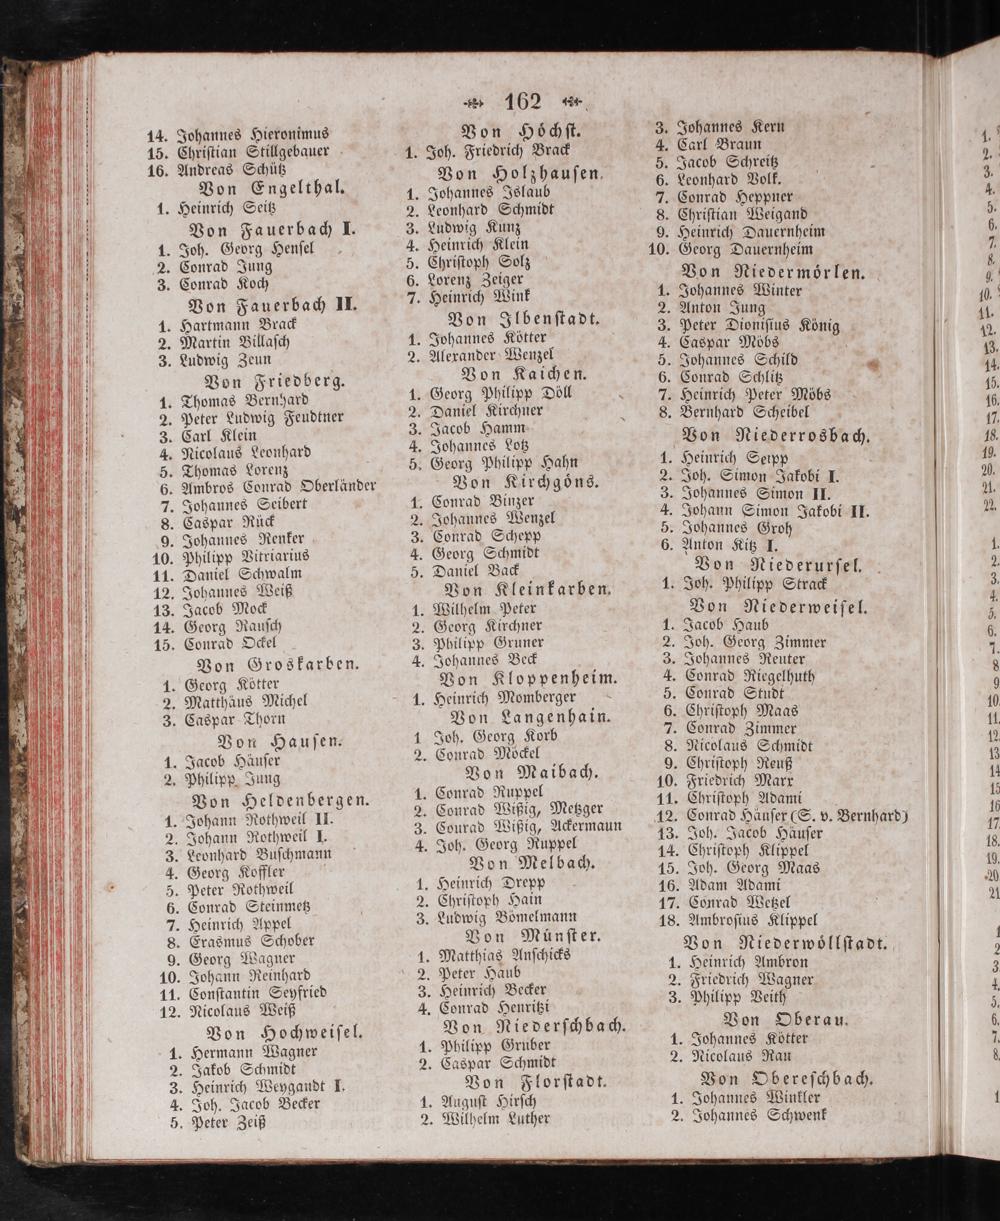 162
14. Johannes Hieronimus
15. Christian Stillgebauer
16. Andreas Schütz
Von Engelthal.
1. Heinrich Seitz
Von Fauerbach I.
1. Joh. Georg Hensel
2. Conrad Jung
3. Conrad Koch
Von Fauerbach II.
1. Hartmann Brack
2. Martin Billasch
3. Ludwig Zeun
Von Friedberg.
1. Thomas Bernhard
2. Peter Ludwig Feudtner
3. Carl Klein
4. Nicolaus Leonhard
5. Thomas Lorenz
6. Ambros Conrad Oberländer
7. Johannes Seibert
8. Caspar Rück
9. Johannes Renker
10. Philipp Vitriarius
11. Daniel Schwalm
12. Johannes Weiß
13. Jacob Mock
14. Georg Rausch
15. Conrad Ockel
Von Groskarben.
1. Georg Kötter
2. Matthäus Michel
3. Caspar Thorn
Von Hausen.
1. Jacob Häuser
2. Philipp Jung
Von Heldenbergen.
1. Johann Rothweil II.
2. Johann Rothweil I.
3. Leonhard Buschmann
4. Georg Koffler
5. Peter Rothweil
6. Conrad Steinmetz
7. Heinrich Appel
8. Erasmus Schober
9. Georg Wagner
10. Johann Reinhard
11. Constantin Seyfried
12. Nicolaus Weiß
Von Hochweisel.
1. Hermann Wagner
2. Jakob Schmidt
3. Heinrich Weygandt I.
4. Joh. Jacob Becker
5. Peter Zeiß
Von Höchst.
1. Joh. Friedrich Brack
Von Holzhausen.
1. Johannes Islaub
2. Leonhard Schmidt
3. Ludwig Kunz
4. Heinrich Klein
5. Christoph Solz
6. Lorenz Zeiger
7. Heinrich Wink
Von Ilbenstadt.
1. Johannes Kötter
2. Alexander Wenzel
Von Kaichen.
1. Georg Philipp Döll
2. Daniel Kirchner
3. Jacob Hamm
4. Johannes Lotz
5. Georg Philipp Hahn
Von Kirchgöns.
1. Conrad Binzer
2. Johannes Wenzel
3. Conrad Schepp
4. Georg Schmidt
5. Daniel Back
Von Kleinkarben.
1. Wilhelm Peter
2. Georg Kirchner
3. Philipp Gruner
4. Johannes Beck
Von Kloppenheim.
1. Heinrich Momberger
Von Langenhain.
1 Joh. Georg Korb
2. Conrad Möckel
Von Maibach.
1. Conrad Ruppel
2. Conrad Wißig, Metzger
3. Conrad Wißig, Ackermann
4. Joh. Georg Ruppel
Von Melbach.
1. Heinrich Drepp
2. Christoph Hain
3. Ludwig Bömelmann
Von Münster.
1. Matthias Anschicks
2. Peter Haub
3. Heinrich Becker
4. Conrad Henritzi
Von Niederschbach.
1. Philipp Gruber
2. Caspar Schmidt
Von Florstadt.
1. August Hirsch
2. Wilhelm Luther
3. Johannes Kern
4. Carl Braun
5. Jacob Schreitz
6. Leonhard Volk.
7. Conrad Heppner
8. Christian Weigand
9. Heinrich Dauernheim
10. Georg Dauernheim
Von Niedermörlen.
1. Johannes Winter
2. Anton Jung
3. Peter Dionisius König
4. Caspar Möbs
5. Johannes Schild
6. Conrad Schlitz
7. Heinrich Peter Möbs
8. Bernhard Scheibel
Von Niederrosbach.
1. Heinrich Seipp
2. Joh. Simon Jakobi I.
3. Johannes Simon II.
4. Johann Simon Jakobi II.
5. Johannes Groh
6. Anton Kitz I.
Von Niederursel.
1. Joh. Philipp Strack
Von Niederweisel.
1. Jacob Haub
2. Joh. Georg Zimmer
3. Johannes Reuter
4. Conrad Riegelhuth
5. Conrad Studt
6. Christoph Maas
7. Conrad Zimmer
8. Nicolaus Schmidt
9. Christoph Reuß
10. Friedrich Marx
11. Christoph Adami
12. Conrad Häuser (S. v. Bernhard)
13. Joh. Jacob Häuser
14. Christoph Klippel
15. Joh. Georg Maas
16. Adam Adami
17. Conrad Wetzel
18. Ambrosius Klippel
Von Niederwöllstadt.
1. Heinrich Ambron
2. Friedrich Wagner
3. Philipp Veith
Von Oberau.
1. Johannes Kötter
2. Nicolaus Rau
Von Obereschbach.
1. Johannes Winkler
2. Johannes Schwenk